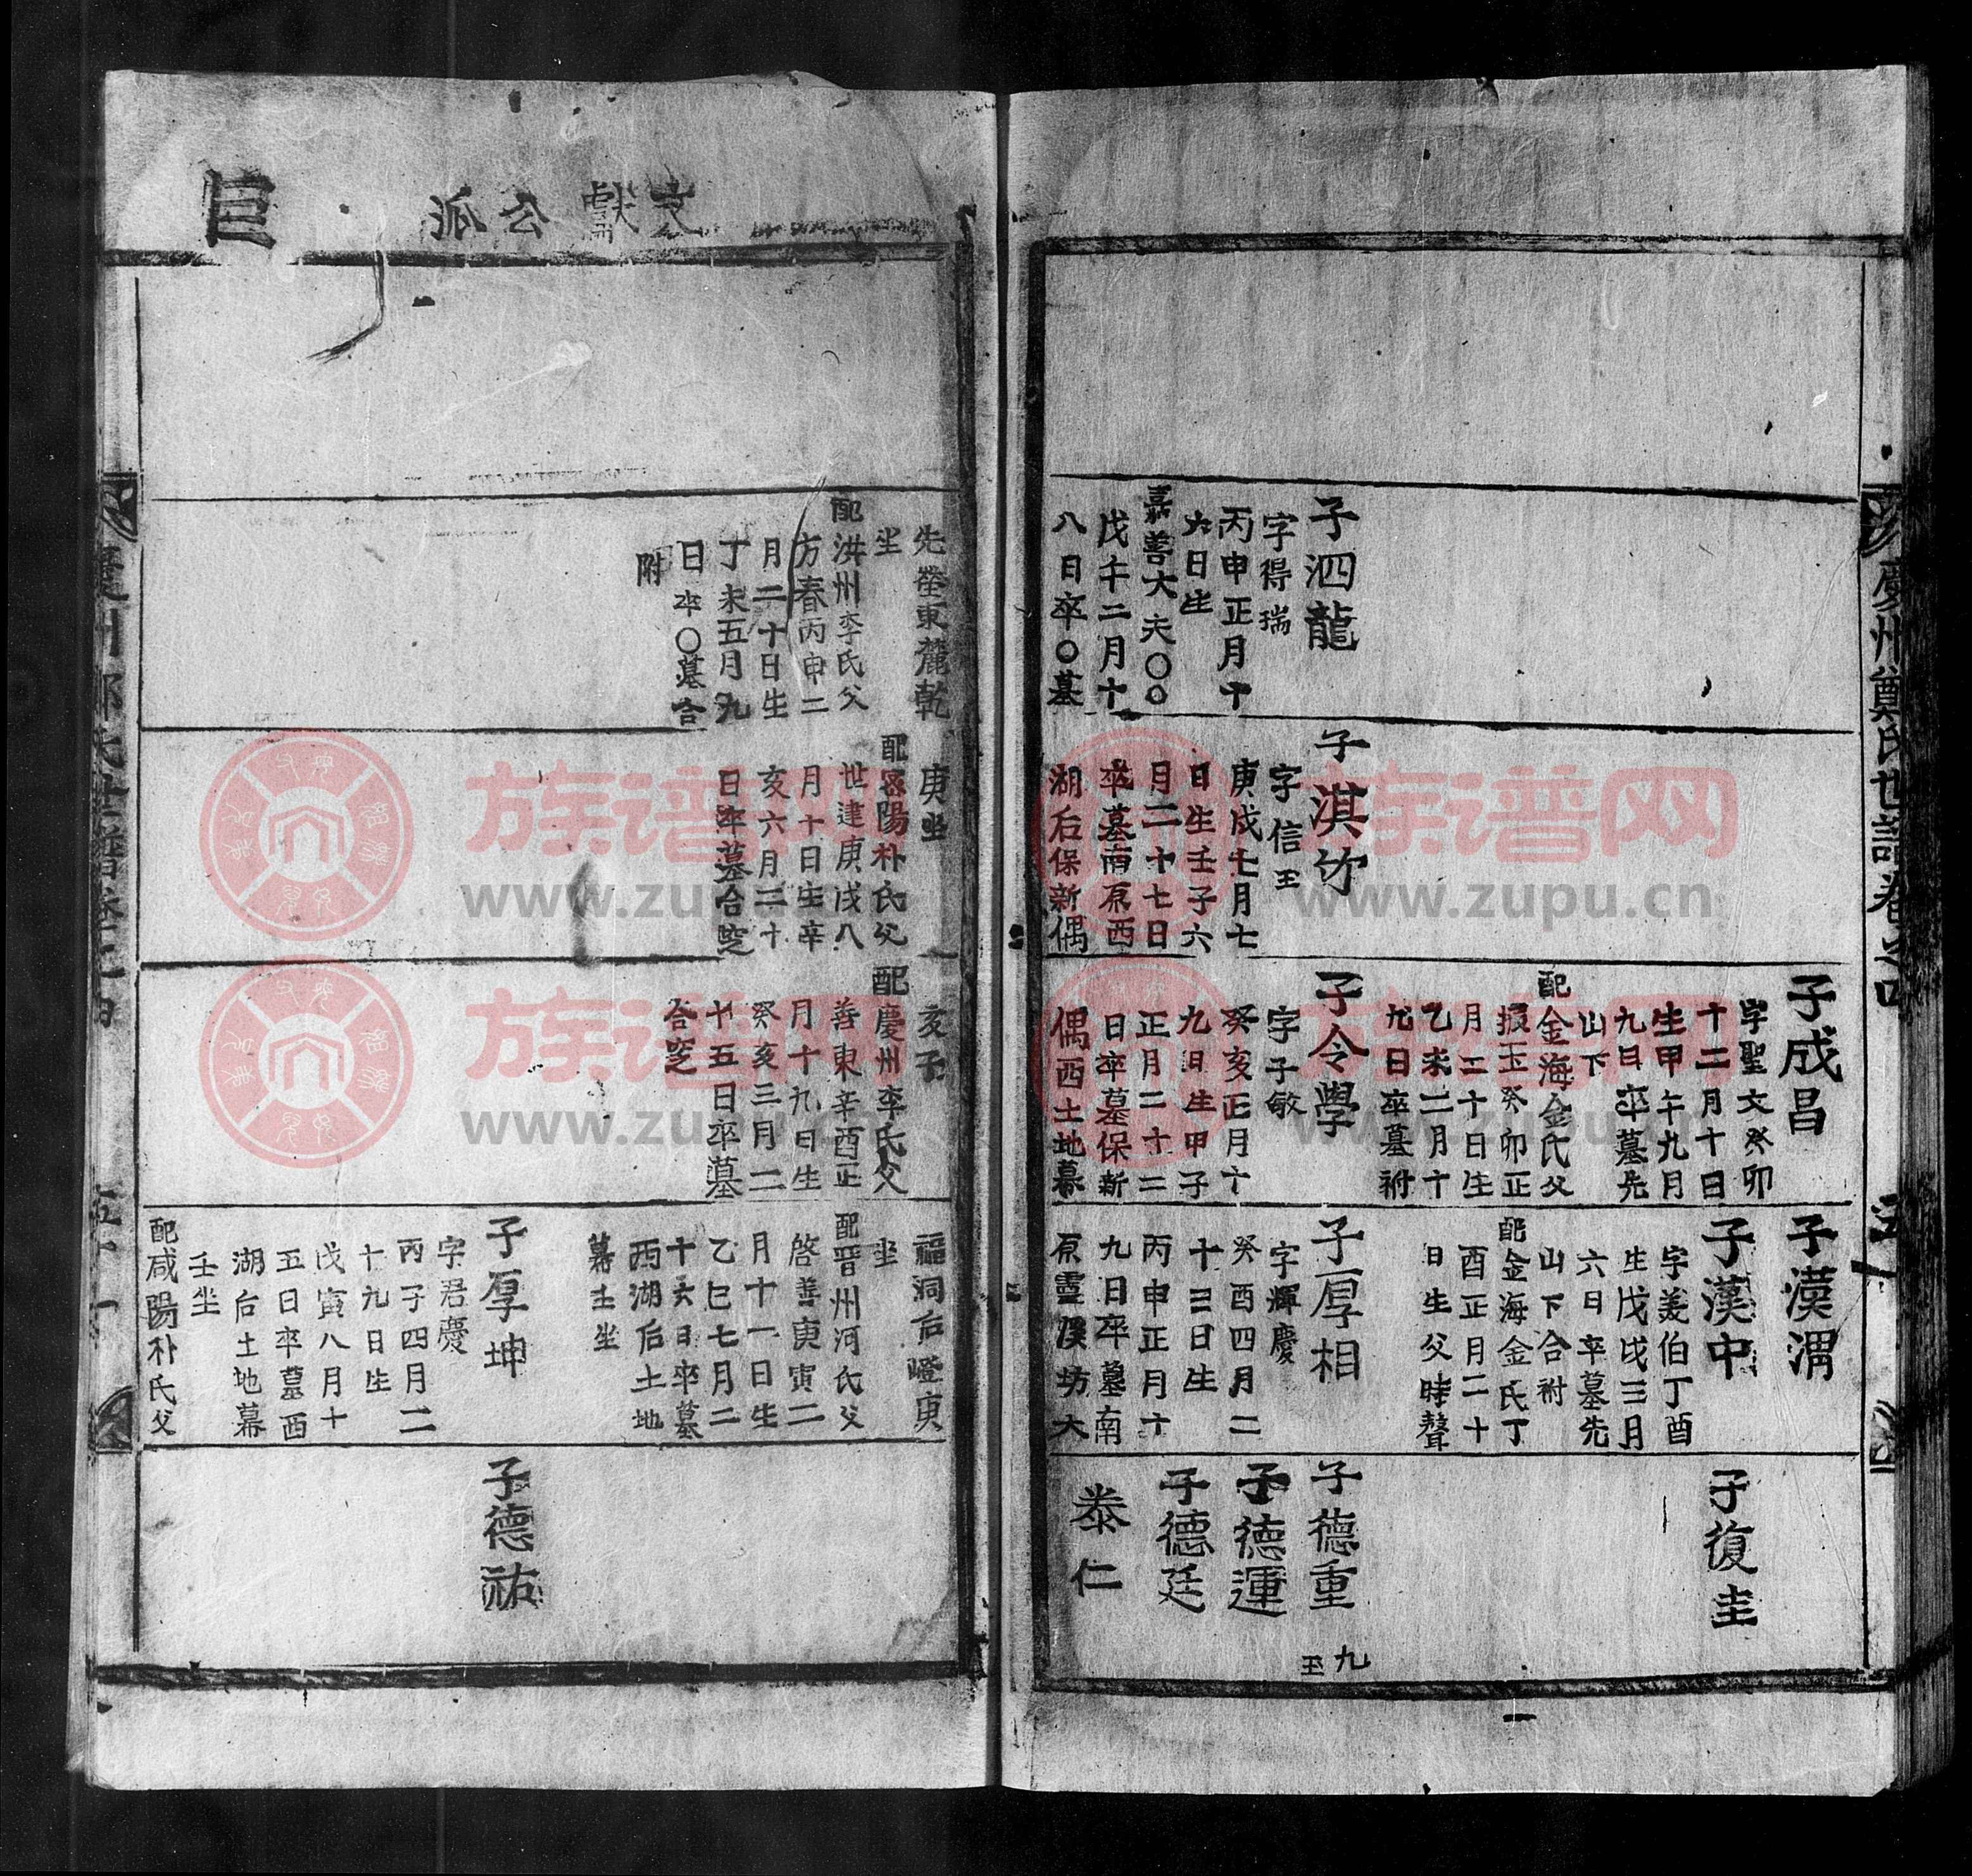 慶州鄭氏世譜卷之四
子泗龍
字得瑞
丙申正月十
六日生
嘉善大夫〇〇
戊午二月十
八日卒〇墓
子淇竹
字信玉
庚戌七月七
日生壬子六
月二十七日
卒墓南原西
湖后保新偶
子成昌
字聖文癸卯
十二月十日
生甲午九月
九日卒墓先
山下
配金海金氏父
振玉癸卯正
月二十日生
乙未二月十
九日卒墓祔
子令學
字子敏
癸亥正月十
九日生甲子
正月二十二
日卒墓保新
偶西土地幕
子漢渭
子漢中
字美伯丁酉
生戊戌三月
六日卒墓先
山下合祔
配金海金氏丁
酉正月二十
日生父時聲
子厚相
字輝慶
癸酉四月二
十三日生
丙申正月十
九日卒墓南
原靈溪坊大
子復圭
子德重
子德運
子德廷
泰仁
九
五
文獻公派
先塋東麓乾
坐
配洪州李氏父
方春丙申二
月二十日生
丁未五月九
日卒〇墓合
附
庚坐
配密陽朴氏父
世建庚戌八
月十日生辛
亥六月二十
日卒墓合窆
亥子
配慶州李氏父
善東辛酉正
月十九日生
癸亥三月二
十五日卒墓
合窆
福洞后嶝庚
坐
配晋州河氏父
啓善庚寅二
月十一日生
乙巳七月二
十六日卒墓
西湖后土地
幕壬坐
子厚坤
字君慶
丙子四月二
十九日生
戊寅八月十
五日卒墓西
湖后土地幕
壬坐
配咸陽朴氏父
子德祐
慶州鄭氏世譜卷之四
五十一
族谱网
www.zupu.cn
族谱网
www.zupu.cn
族谱网
www.zupu.cn
族谱网
www.zupu.cn